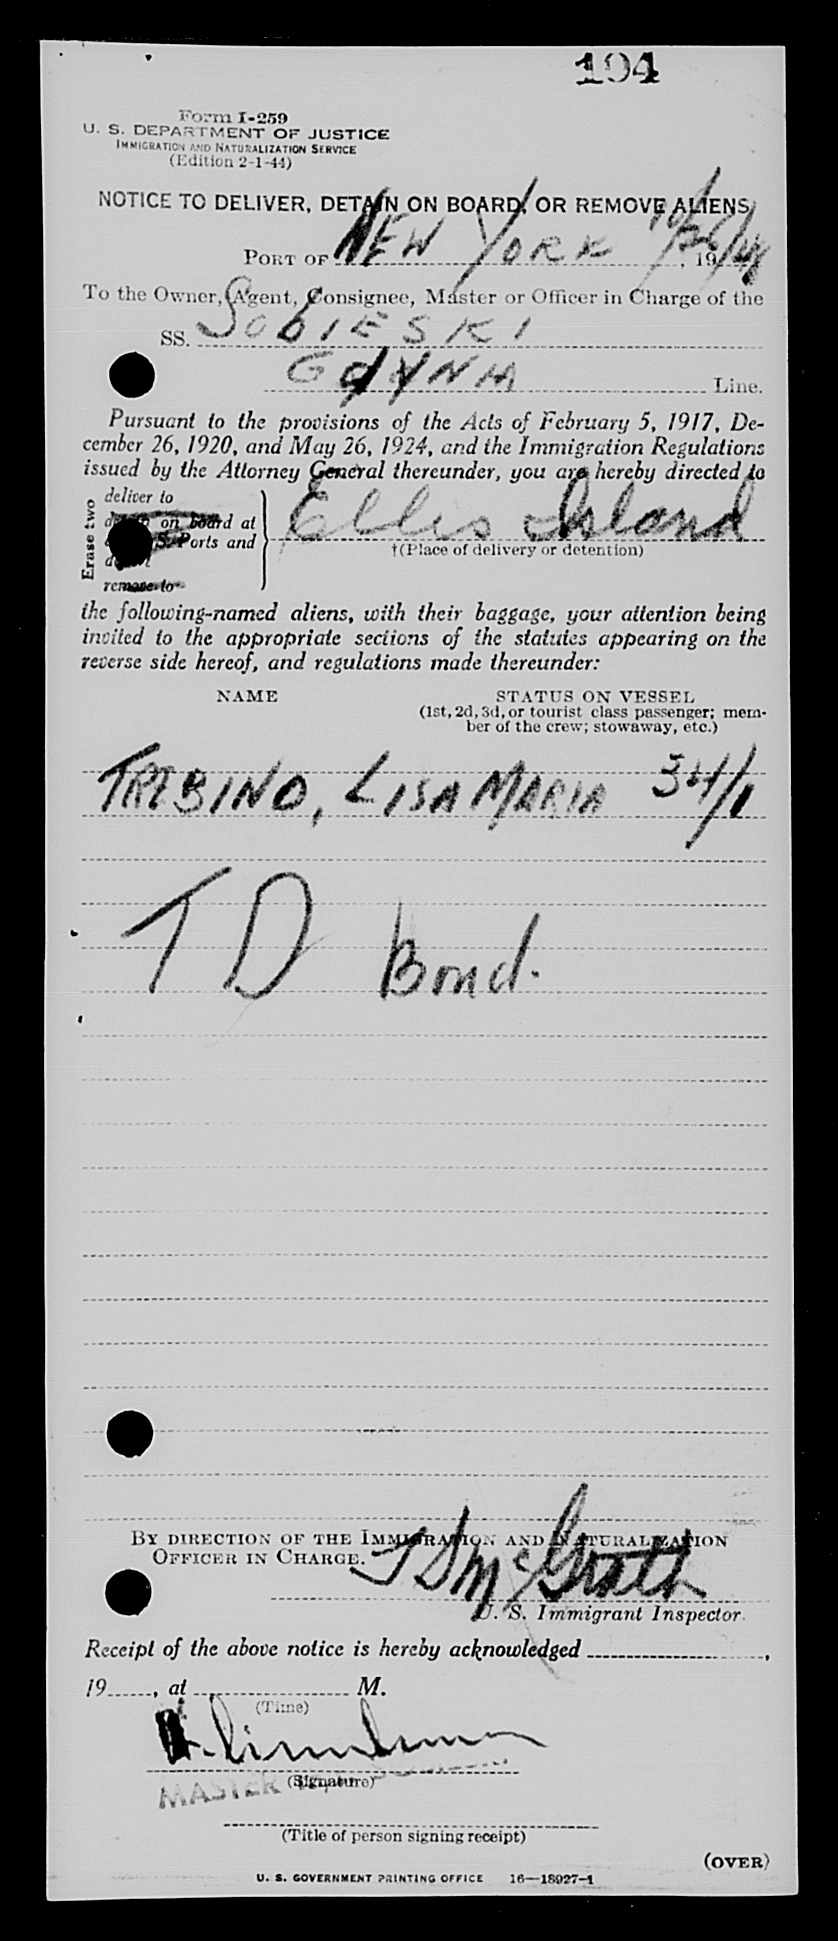 194
Form I-259
U. S. DEPARTMENT OF JUSTICE
IMMIGRATION AND NATURALIZATION SERVICE
(Edition 2-1-44)
NOTICE TO DELIVER, DETAIN ON BOARD, OR REMOVE ALIENS
PORT OF NEW YORK 10/26/48, 19
To the Owner, Agent, Consignee, Master or Officer in Charge of the
SS. SOBIESKI
GDYNIA Line.
Pursuant to the provisions of the Acts of February 5, 1917, De-
cember 26, 1920, and May 26, 1924, and the Immigration Regulations
issued by the Attorney General thereunder, you are hereby directed to
Erase two
deliver to
on board at
Ports and
remove to
Ellis Island
†(Place of delivery or detention)
the following-named aliens, with their baggage, your attention being
invited to the appropriate sections of the statutes appearing on the
reverse side hereof, and regulations made thereunder:
NAME STATUS ON VESSEL
(1st, 2d, 3d, or tourist class passenger; mem-
ber of the crew; stowaway, etc.)
TRIBINO, LISA MARIA 34/11
TD Bond.
BY DIRECTION OF THE IMMIGRATION AND NATURALIZATION
OFFICER IN CHARGE.
McGrath
U. S. Immigrant Inspector.
Receipt of the above notice is hereby acknowledged ,
19 , at M.
(Time)
(Signature)
MASTER
(Title of person signing receipt)
(OVER)
U. S. GOVERNMENT PRINTING OFFICE 16—18927-1